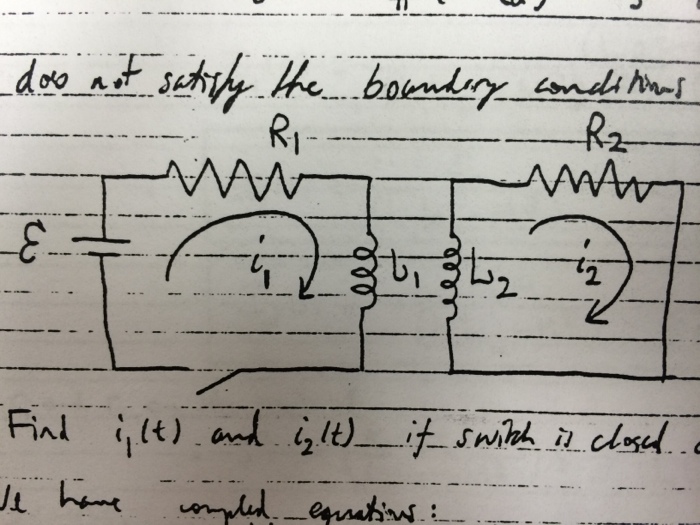 does not satisfy the boundary conditions
R1 R2
ε i1 L1 L2 i2
Find i1(t) and i2(t) if switch is closed
have coupled equations: